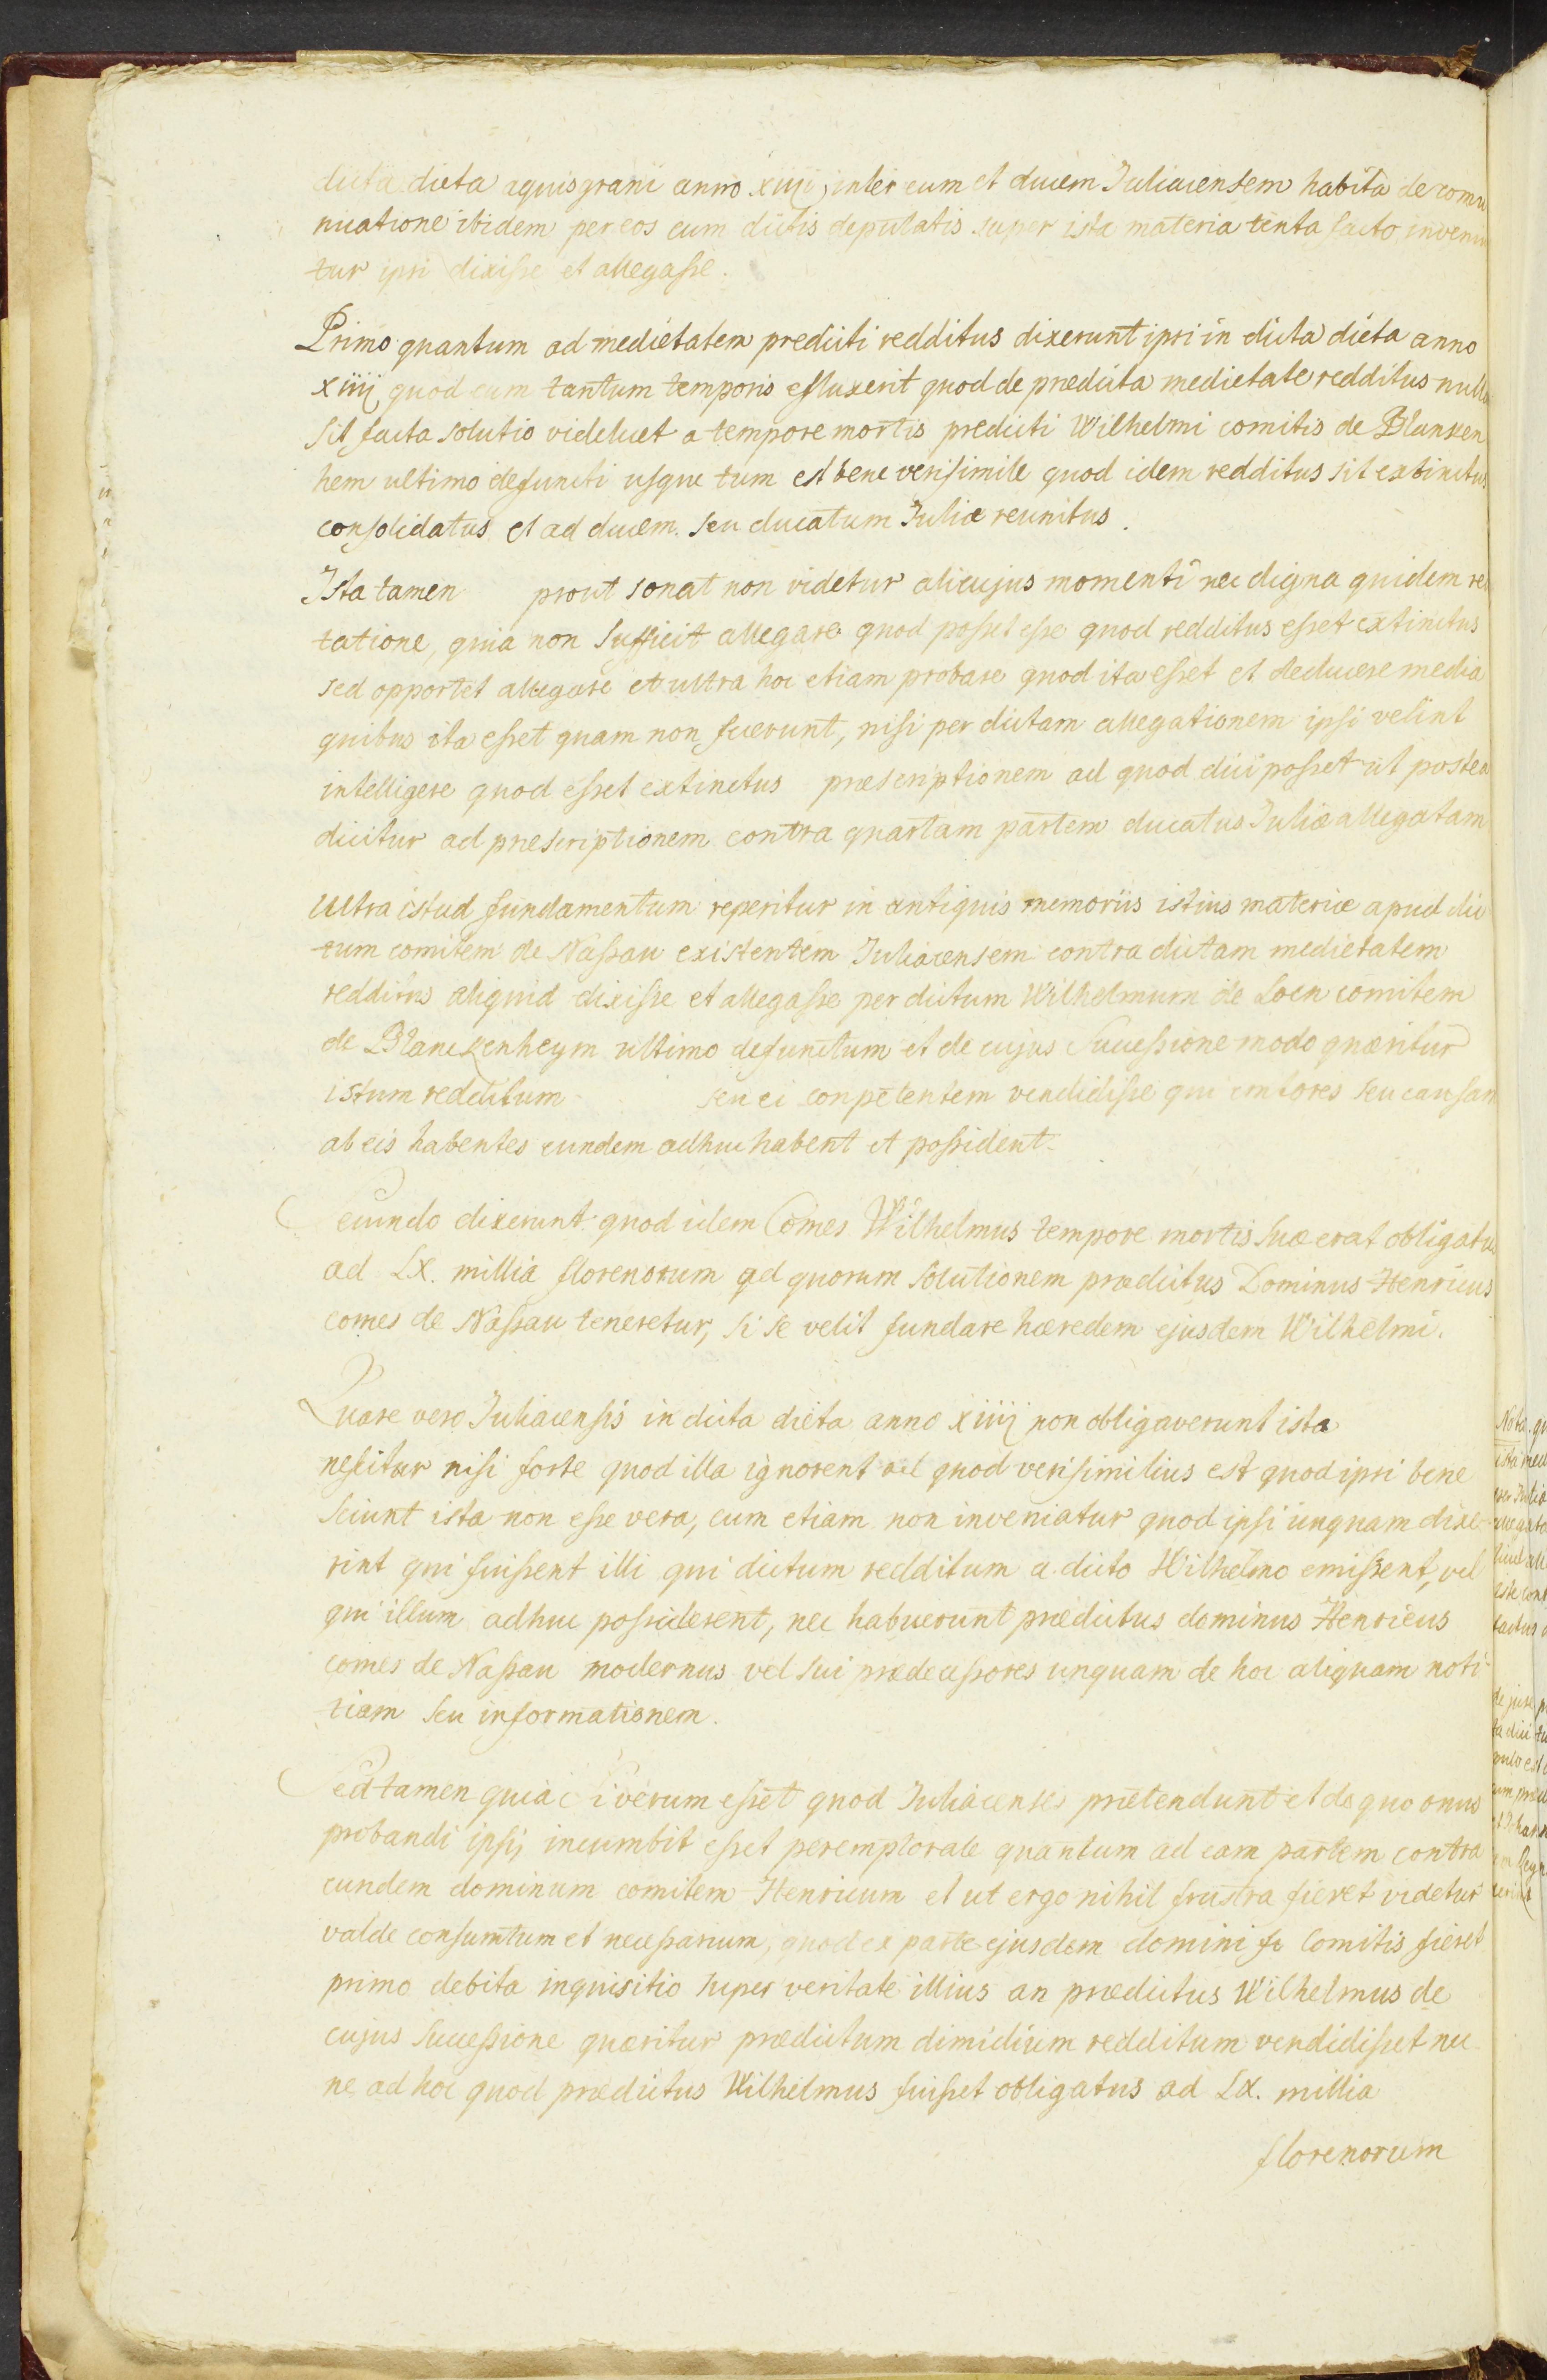 dicta dieta aquisgrani anno xiiij inter eum et ducem Juliacensem habita de comu
nicatione ibidem per eos cum dictis deputatis super ista materia tenta facto inveniu
tur ipsi dixisse et allegasse.
Primo quantum ad medietatem predicti redditus dixerunt ipsi in dicta dieta anno
xiiij quod cum tantum temporis effluxerit quod de prædicta medietate redditus nulla
sit facta solutio videlicet a tempore mortis predicti Wilhelmi comitis de Blanken
hem ultimo defuncti usque tum est bene verisimile quod idem redditus sit extinctus
consolidatus et ad ducem seu ducatum Juliæ reunitus.
Ista tamen prout sonat non videtur alicujus momenti nec digna quidem re
tatione, quia non sufficit allegare quod posset esse quod redditus esset extinctus
sed opportet allegare et ultra hoc etiam probare quod ita esset et deducere media
quibus ita esset quam non fuerunt, nisi per dictam allegationem ipsi velint
intelligere quod esset extinctus præscriptionem ad quod dici posset ut postea
dicitur ad præscriptionem contra quartam partem ducatus Juliæ allegatam
Ultra istud fundamentum reperitur in antiquis memoriis istius materiæ apud dic
tum comitem de Nassau existentem Juliacensem contra dictam medietatem
redditus aliquid dixisse et allegasse per dictum Wilhelmum de Loen comitem
de Blanckenheym ultimo defunctum et de cujus successione modo quæritur
istum redditum seu ei conpetentem vendidisse qui emtores seu causam
ab eis habentes eundem adhuc habent et possident.
Secundo dixerunt quod idem Comes Wilhelmus tempore mortis suæ erat obligatus
ad LX. millia florenorum ad quorum solutionem prædictus Dominus Henricus
comes de Nassau teneretur, si se velit fundare hæredem ejusdem Wilhelmi.
Quare vero Juliacensis in dicta dieta anno xiiij non obligaverunt ista
nescitur nisi forte quod illa ignorent vel quod verisimilius est quod ipsi bene
sciunt ista non esse vera, cum etiam non inveniatur quod ipsi unquam dixe-
rint qui fuissent illi qui dictum redditum a dicto Wilhelmo emissent, vel
qui illum adhuc possiderent, nec habuerunt prædictus dominus Henricus
comes de Nassau modernus vel sui prædecessores unquam de hoc aliquam noti-
tiam seu informationem.
Sed tamen quia si verum esset quod Juliacenses prætendunt et de quo onus
probandi ipsis incumbit esset peremptorale quantum ad eam partem contra
eundem dominum comitem Henricum et ut ergo nihil frustra fieret videtur
valde consumtum et necessarium, quod ex parte ejusdem domini fr Comitis fieret
primo debita inquisitio super veritate illius an prædictus Wilhelmus de
cujus successione quæritur prædictum dimidium redditum vendidisset nec
ne, ad hoc quod prædictus Wilhelmus fuisset obligatus ad LX. millia
florenorum